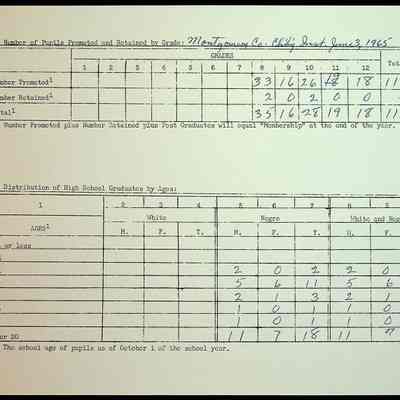 Number of Pupils Promoted and Retained by Grade: Montgomery Co. June 3, 1965
GRADES
1 2 3 4 5 6 7 8 9 10 11 12
mber Promoted1 33 16 26 18 11
mber Retained1 2 0 2 0 0
tal1 35 16 28 19 18 11
Number Promoted plus Number Retained plus Post Graduates will equal "Membership" at the end of the year.
Distribution of High School Graduates by Ages:
1 2 3 4 5 6 7 8 9
AGES1 White Negro White and Neg
M. F. T. M. F. T. M. F.
or less
2 0 2 2 0
5 6 11 5 6
2 1 3 2 1
1 0 1 1 0
1 0 1 1 0
er 20 11 7 18 11 7
The school age of pupils as of October 1 of the school year.